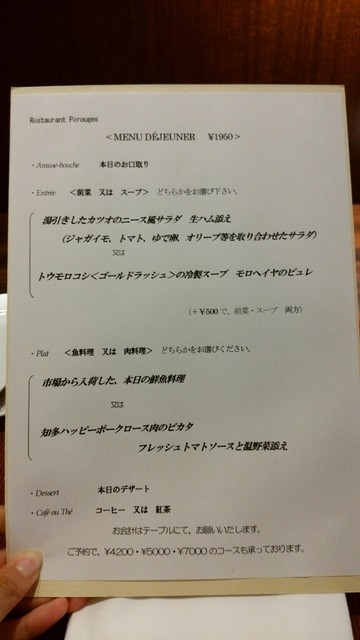 Restaurant Perouges
＜MENU DÉJEUNER ¥1950＞
・Amuse-bouche 本日のお口取り
・Entrée ＜前菜 又は スープ＞ どちらかをお選び下さい。
湯引きしたカツオのニース風サラダ 生ハム添え
（ジャガイモ、トマト、ゆで卵、オリーブ等を取り合わせたサラダ）
又は
トウモロコシ＜ゴールドラッシュ＞の冷製スープ モロヘイヤのピュレ
（＋¥500で、前菜・スープ 両方）
・Plat ＜魚料理 又は 肉料理＞ どちらかをお選びください。
市場から入荷した、本日の鮮魚料理
又は
知多ハッピーポークロース肉のピカタ
フレッシュトマトソースと温野菜添え
・Dessert 本日のデザート
・Café ou Thé コーヒー 又は 紅茶
お会計はテーブルにて、お願いいたします。
ご予約で、¥4200・¥5000・¥7000のコースも承っております。